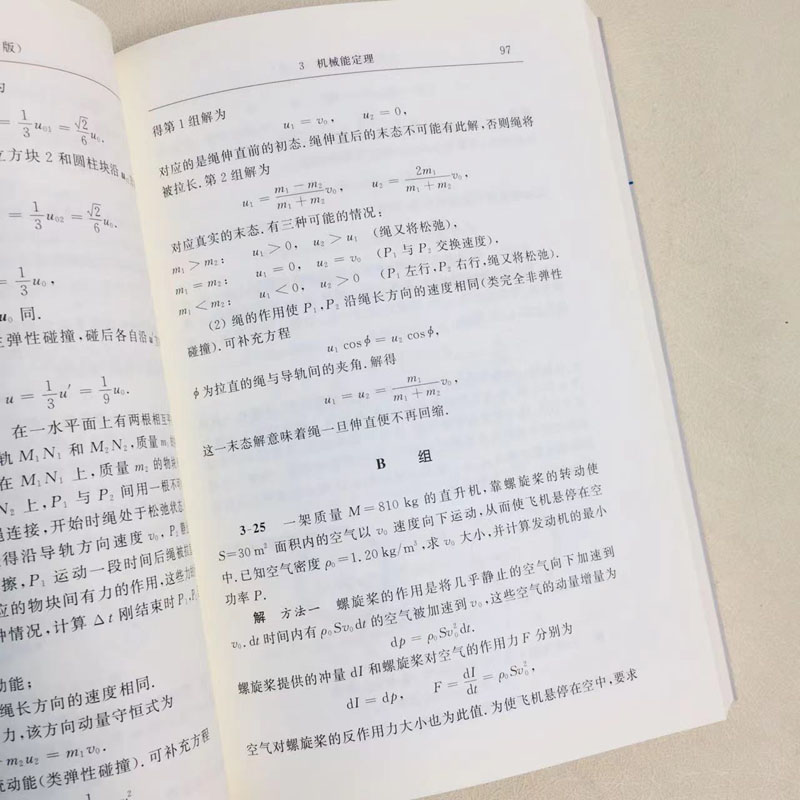 版)
= 1/3 u₀₁ = √2/6 u₀.
立方块 2 和圆柱块沿
= 1/3 u₀₂ = √2/6 u₀.
= 1/3 u₀,
u₀ 同.
弹性碰撞, 碰后各自沿
u = 1/3 u′ = 1/9 u₀.
在一水平面上有两根相互
轨 M₁N₁ 和 M₂N₂, 质量 m₁
在 M₁N₁ 上, 质量 m₂ 的物块
N₂ 上, P₁ 与 P₂ 间用一根不可
连接, 开始时绳处于松弛状态
得沿导轨方向速度 v₀, P₂
擦, P₁ 运动一段时间后绳被拉
应的物块间有力的作用, 这些力
种情况, 计算 Δt 刚结束时 P₁,
动能;
绳长方向的速度相同.
力, 该方向动量守恒式为
+ m₂u₂ = m₁v₀.
动能(类弹性碰撞). 可补充方程
3 机械能定理 97
得第 1 组解为
u₁ = v₀, u₂ = 0,
对应的是绳伸直前的初态. 绳伸直后的末态不可能有此解, 否则绳将
被拉长. 第 2 组解为
u₁ = (m₁ − m₂)/(m₁ + m₂) v₀, u₂ = 2m₁/(m₁ + m₂) v₀,
对应真实的末态. 有三种可能的情况:
m₁ > m₂: u₁ > 0, u₂ > u₁ (绳又将松弛),
m₁ = m₂: u₁ = 0, u₂ = v₀ (P₁ 与 P₂ 交换速度).
m₁ < m₂: u₁ < 0, u₂ > 0 (P₁ 左行, P₂ 右行, 绳又将松弛).
(2) 绳的作用使 P₁, P₂ 沿绳长方向的速度相同(类完全非弹性
碰撞). 可补充方程
u₁ cosϕ = u₂ cosϕ,
ϕ为拉直的绳与导轨间的夹角. 解得
u₁ = u₂ = m₁/(m₁ + m₂) v₀,
这一末态解意味着绳一旦伸直便不再回缩.
B 组
3-25 一架质量 M=810 kg 的直升机, 靠螺旋桨的转动使
S=30 m² 面积内的空气以 v₀ 速度向下运动, 从而使飞机悬停在空
中. 已知空气密度 ρ₀=1.20 kg/m³, 求 v₀ 大小, 并计算发动机的最小
功率 P.
解 方法一 螺旋桨的作用是将几乎静止的空气向下加速到
v₀. dt 时间内有 ρ₀Sv₀dt 的空气被加速到 v₀, 这些空气的动量增量为
dp = ρ₀Sv₀²dt.
螺旋桨提供的冲量 dI 和螺旋桨对空气的作用力 F 分别为
dI = dp, F = dI/dt = ρ₀Sv₀²,
空气对螺旋桨的反作用力大小也为此值. 为使飞机悬停在空中, 要求